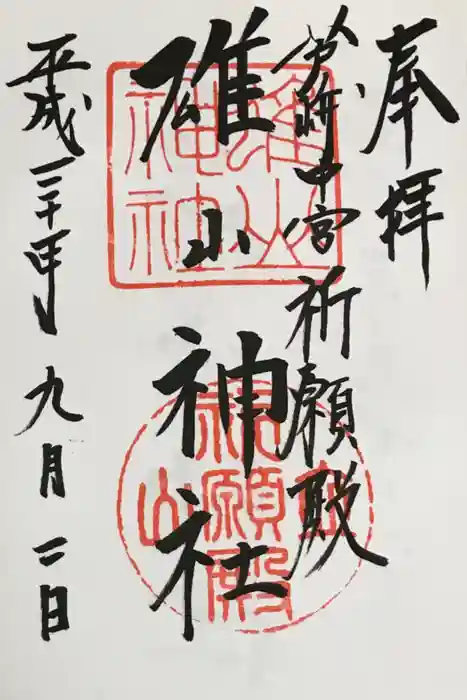 奉拝
芦峅中宮祈願殿
雄山神社
平成三十年九月二日
雄山神社
立山
祈願殿